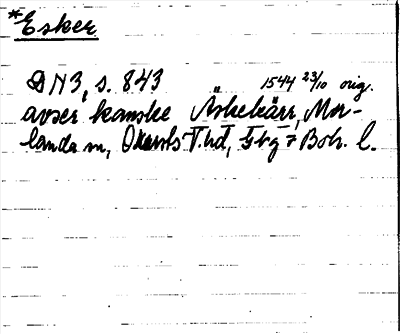 *Esker
DN3, s. 843 1544 23/10 orig.
avser kanske Äskekärr, Mor-
landa sn, Orusts V. hd, Gbg o Boh. l.